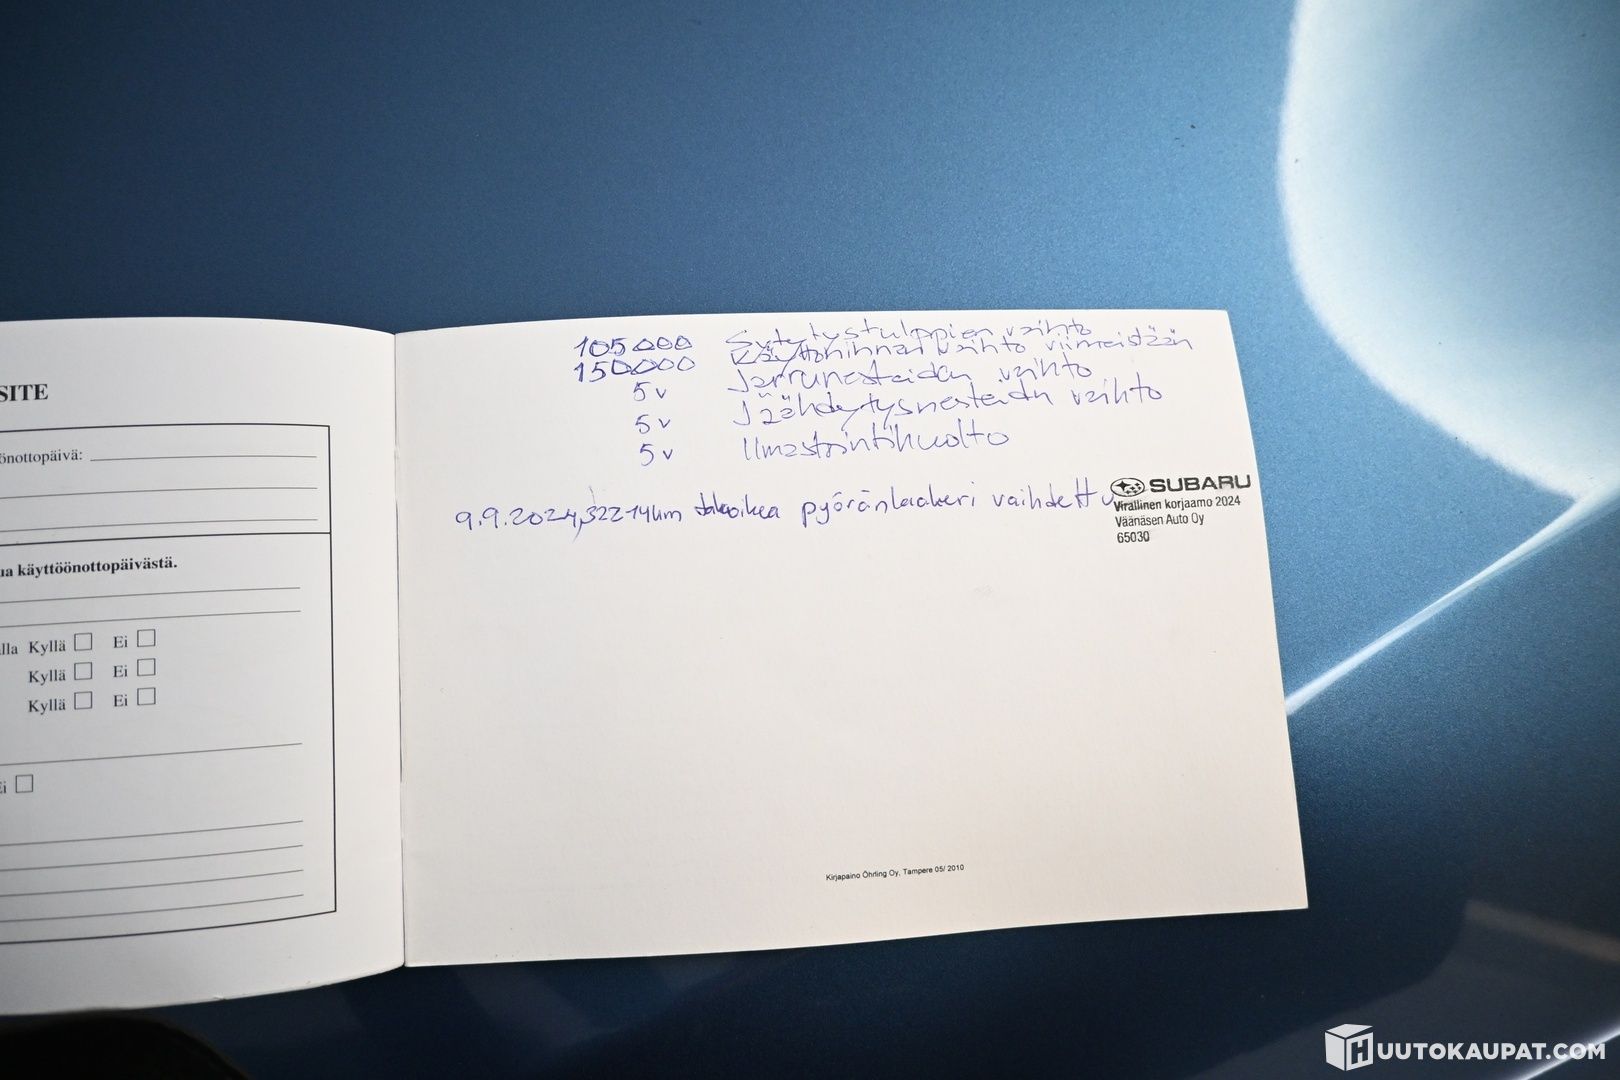 SITE
önottopäivä:
ua käyttöönottopäivästä.
lla Kyllä Ei
Kyllä Ei
Kyllä Ei
Ei
105000 Sytytystulppien vaihto
150000 Käyttöhihnan vaihto viimeistään
5 v Jarrunesteiden vaihto
5 v Jäähdytysnesteiden vaihto
5 v Ilmastointihuolto
9.9.2024, 32214km takaoikea pyöränlaakeri vaihdettu
SUBARU
Virallinen korjaamo 2024
Väänäsen Auto Oy
65030
Kirjapaino Öhrling Oy, Tampere 05/ 2010
HUUTOKAUPAT.COM